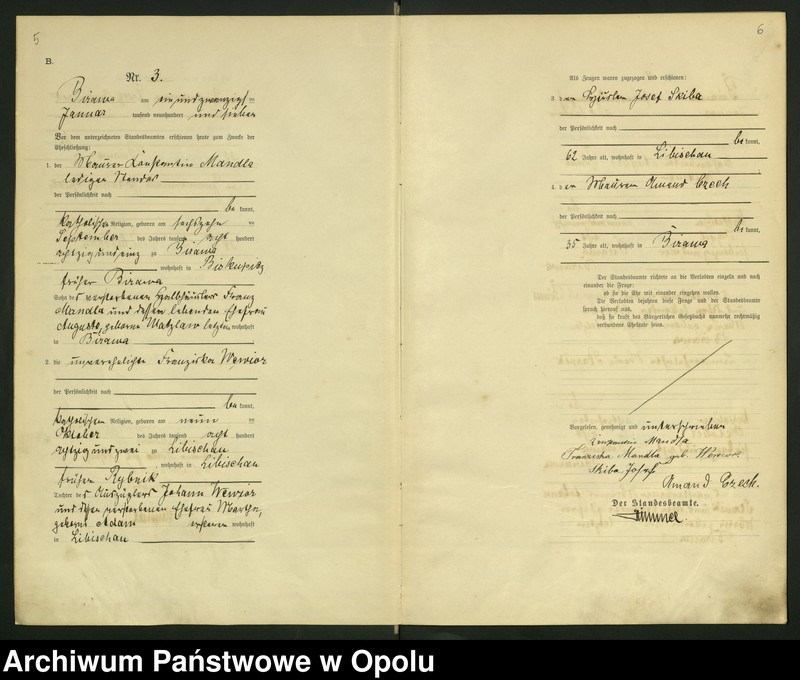 5
B.
Nr. 3.
Birawa am einundzwanzigsten
Januar tausend neunhundert und sieben
Vor dem unterzeichneten Standesbeamten erschienen heute zum Zwecke der
Eheschließung:
1. der Maurer Konstantin Mandla
ledigen Standes
der Persönlichkeit nach
be kannt,
katholischer Religion, geboren am sechszehn
September des Jahres tausend acht hundert
achtzig und eins zu Birawa
wohnhaft in Biskupitz
früher Birawa
Sohn des verstorbenen Halbhäuslers Franz
Mandla und dessen lebenden Ehefrau
Auguste, geborne letztere wohnhaft
in Birawa
2. die unverehelichte Franziska Wewior
der Persönlichkeit nach
be kannt,
katholischer Religion, geboren am neun
Oktober des Jahres tausend acht hundert
achtzig und zwei zu Libischau
wohnhaft in Libischau
früher Rybnik
Tochter des Auszüglers Johann Wewior
und dessen verstorbenen Ehefrau Marthe,
geborne Adam ersterer wohnhaft
in Libischau
6
Als Zeugen waren zugezogen und erschienen:
3. der Häusler Josef Skiba
der Persönlichkeit nach
be kannt,
62 Jahre alt, wohnhaft in Libischau
4. der Maurer Amand Czech
der Persönlichkeit nach
be kannt,
35 Jahre alt, wohnhaft in Birawa
Der Standesbeamte richtete an die Verlobten einzeln und nach
einander die Frage:
ob sie die Ehe mit einander eingehen wollen.
Die Verlobten bejahten diese Frage und der Standesbeamte
sprach hierauf aus,
daß sie kraft des Bürgerlichen Gesetzbuchs nunmehr rechtmäßig
verbundene Eheleute seien.
Vorgelesen, genehmigt und unterschrieben
Konstantin Mandla
Franziska Mandla geb. Wewior
Skiba Josef
Amand Czech.
Der Standesbeamte.
Archiwum Państwowe w Opolu